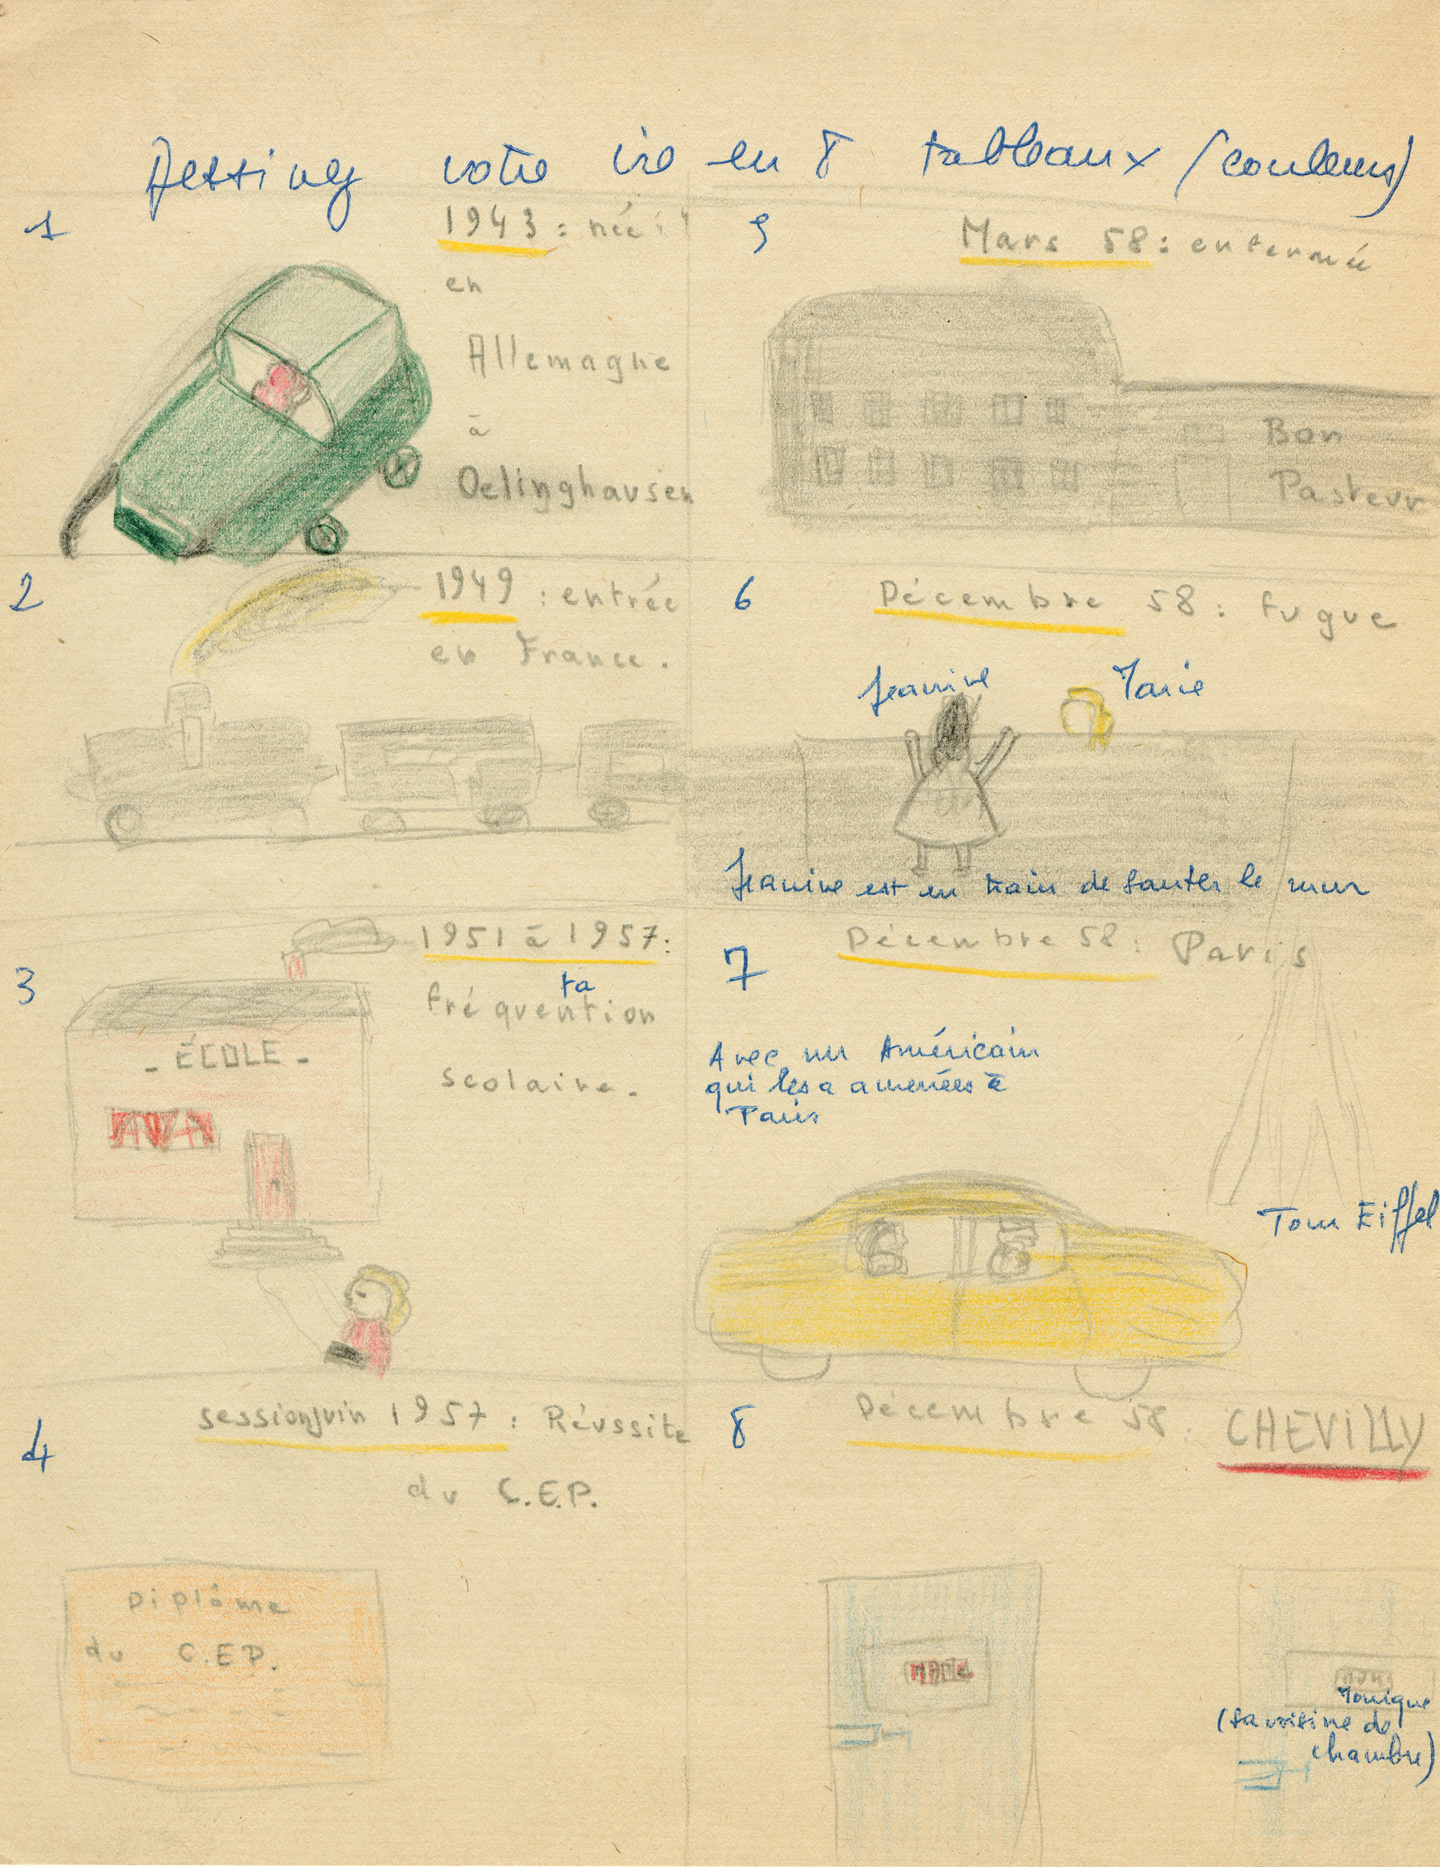 Dessinez votre vie en 8 tableaux (couleurs)
1
1943 : née
en
Allemagne
à
Oelinghausen
2
1949 : entrée
en France.
3
1951 à 1957 :
ta
fréquention
scolaire.
- ÉCOLE -
4
session juin 1957 : Réussite
du C.E.P.
Diplôme
du C.E.P.
5
Mars 58 : enfermée
Bon
Pasteur
6
Décembre 58 : fugue
Jeanine
Marie
Jeanine est en train de sauter le mur
7
Décembre 58 : Paris
Avec un Américain
qui les a amenées à
Paris
Tour Eiffel
8
Décembre 58 : CHEVILLY
Monique
(sa voisine de
chambre)